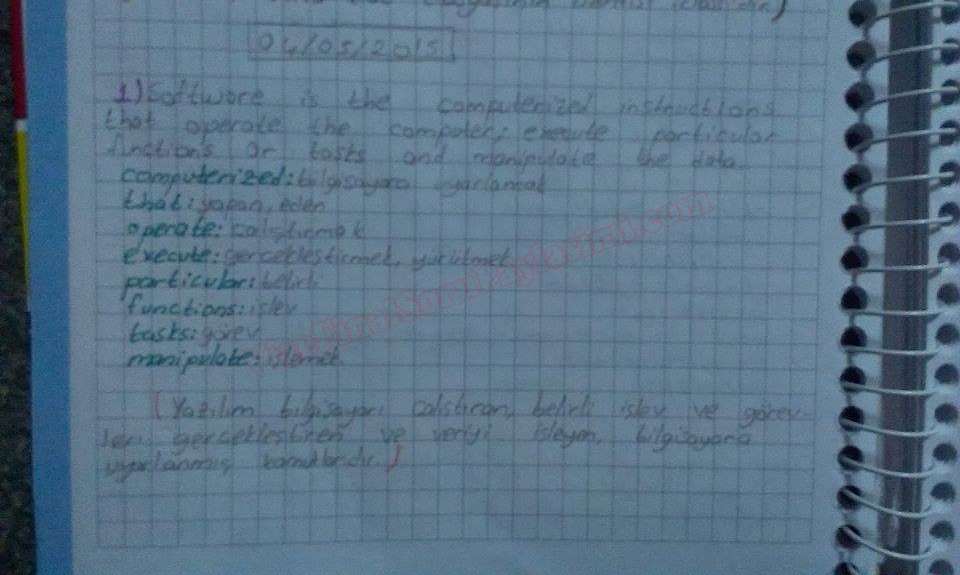 04/05/2015
1) Software is the computerized instructions
that operate the computer, execute particular
functions or tasks and manipulate the data.
computerized: bilgisayara uyarlamak
that: yapan, eden
operate: çalıştırmak
execute: gerçekleştirmek, yürütmek
particular: belirli
functions: işlev
tasks: görev
manipulate: işlemek
(Yazılım bilgisayarı çalıştıran, belirli işlev ve görev-
leri gerçekleştiren ve veriyi işleyen, bilgisayara
uyarlanmış komutlardır.)